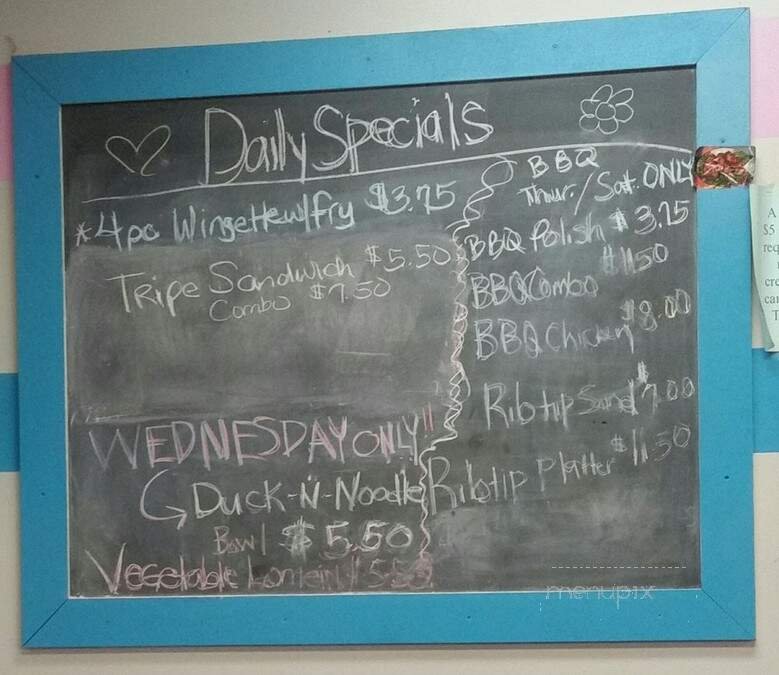 Daily Specials
*4 pc Wingettew/fry $3.75
Tripe Sandwich $5.50
Combo $7.50
WEDNESDAY ONLY!!
Duck-N-Noodle
Bowl $5.50
Vegetable Lomein
BBQ
Thur./Sat. ONLY
BBQ Polish $3.25
BBQ Combo $11.50
BBQ Chicken $8.00
Ribtip Sand $7.00
Ribtip Platter $11.50
A
$5
req
cre
can
T
menupix